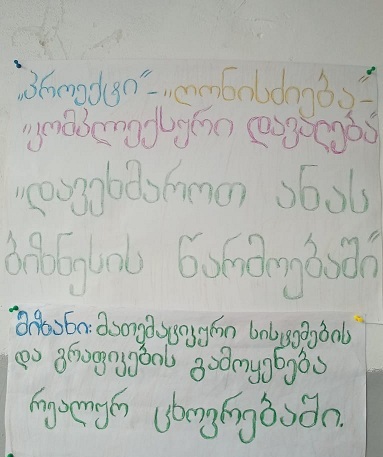 „პროექტი“ - „ღონისძიება -
„კომპლექსური დავალება
„დავეხმაროთ ანას
ბიზნესის წარმოებაში“
მიზანი: მათემატიკური სისტემების
და გრაფიკების გამოყენება
რეალურ ცხოვრებაში.